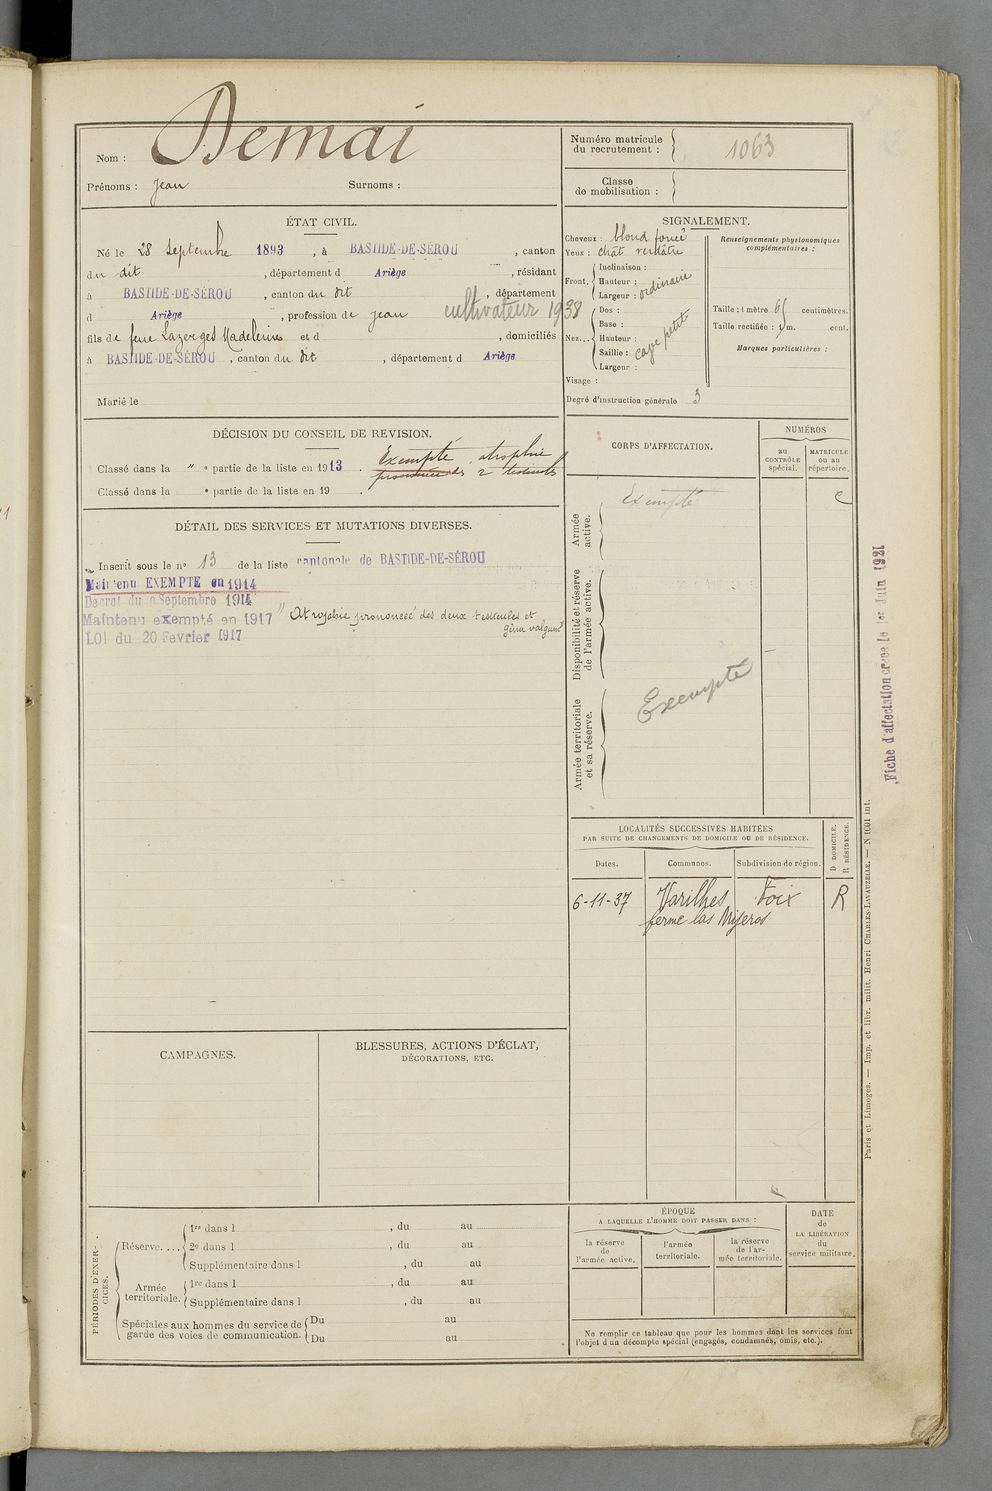 Demai
Nom :
Prénoms : Jean Surnoms :
Numéro matricule du recrutement : 1063
Classe de mobilisation :
ÉTAT CIVIL.
Né le 28 Septembre 1893, à BASTIDE-DE-SÉROU, canton
du dit, département d Ariège, résidant
à BASTIDE-DE-SÉROU, canton du dit, département
d Ariège, profession de cultivateur 1938
fils de feue Lazerges Madeleine et d , domiciliés
à BASTIDE-DE-SÉROU, canton du dit, département d Ariège
Marié le
SIGNALEMENT.
Cheveux : blond foncé
Yeux : chât verdâtre
Front. Inclinaison :
Hauteur : ordinaire
Largeur :
Nez... Dos :
Base :
Hauteur : petit
Saillie :
Largeur :
Visage :
Degré d'instruction générale 3
Renseignements physionomiques
complémentaires :
Taille : 1 mètre 61 centimètres.
Taille rectifiée : 1 m. cent.
Marques particulières :
DÉCISION DU CONSEIL DE REVISION.
Classé dans la " e partie de la liste en 1913. Exempté, atrophie
prononcée des 2 testicules
Classé dans la e partie de la liste en 19 .
DÉTAIL DES SERVICES ET MUTATIONS DIVERSES.
Inscrit sous le n° 13 de la liste cantonale de BASTIDE-DE-SÉROU
Maintenu EXEMPTE en 1914
Décret du 9 Septembre 1914
Maintenu exempté en 1917 " Atrophie prononcée des deux testicules et
genu valgum"
LOI du 20 Février 1917
CORPS D'AFFECTATION.
NUMÉROS
au CONTRÔLE spécial.
MATRICULE ou au répertoire.
Armée active.
Exempté
Disponibilité et réserve de l'armée active.
Armée territoriale et sa réserve.
Exempté
Fiche d'affectation créée le 1er Juin 1921
LOCALITÉS SUCCESSIVES HABITÉES
PAR SUITE DE CHANGEMENTS DE DOMICILE OU DE RÉSIDENCE.
D DOMICILE, R RÉSIDENCE.
Dates. Communes. Subdivision de région.
6-11-37 Varilhes Foix R
ferme las Mijeros
CAMPAGNES.
BLESSURES, ACTIONS D'ÉCLAT,
DÉCORATIONS, ETC.
PÉRIODES D'EXERCICES.
Réserve.... 1re dans l , du au
2e dans l , du au
Supplémentaire dans l , du au
Armée territoriale. 1re dans l , du au
Supplémentaire dans l , du au
Spéciales aux hommes du service de Du au
garde des voies de communication. Du au
ÉPOQUE
A LAQUELLE L'HOMME DOIT PASSER DANS :
la réserve de l'armée active.
l'armée territoriale.
la réserve de l'armée territoriale.
DATE de LA LIBÉRATION du service militaire.
Ne remplir ce tableau que pour les hommes dont les services font
l'objet d'un décompte spécial (engagés, condamnés, omis, etc.).
Paris et Limoges. — Imp. et libr. milit. Henri CHARLES-LAVAUZELLE. — N 1001 int.